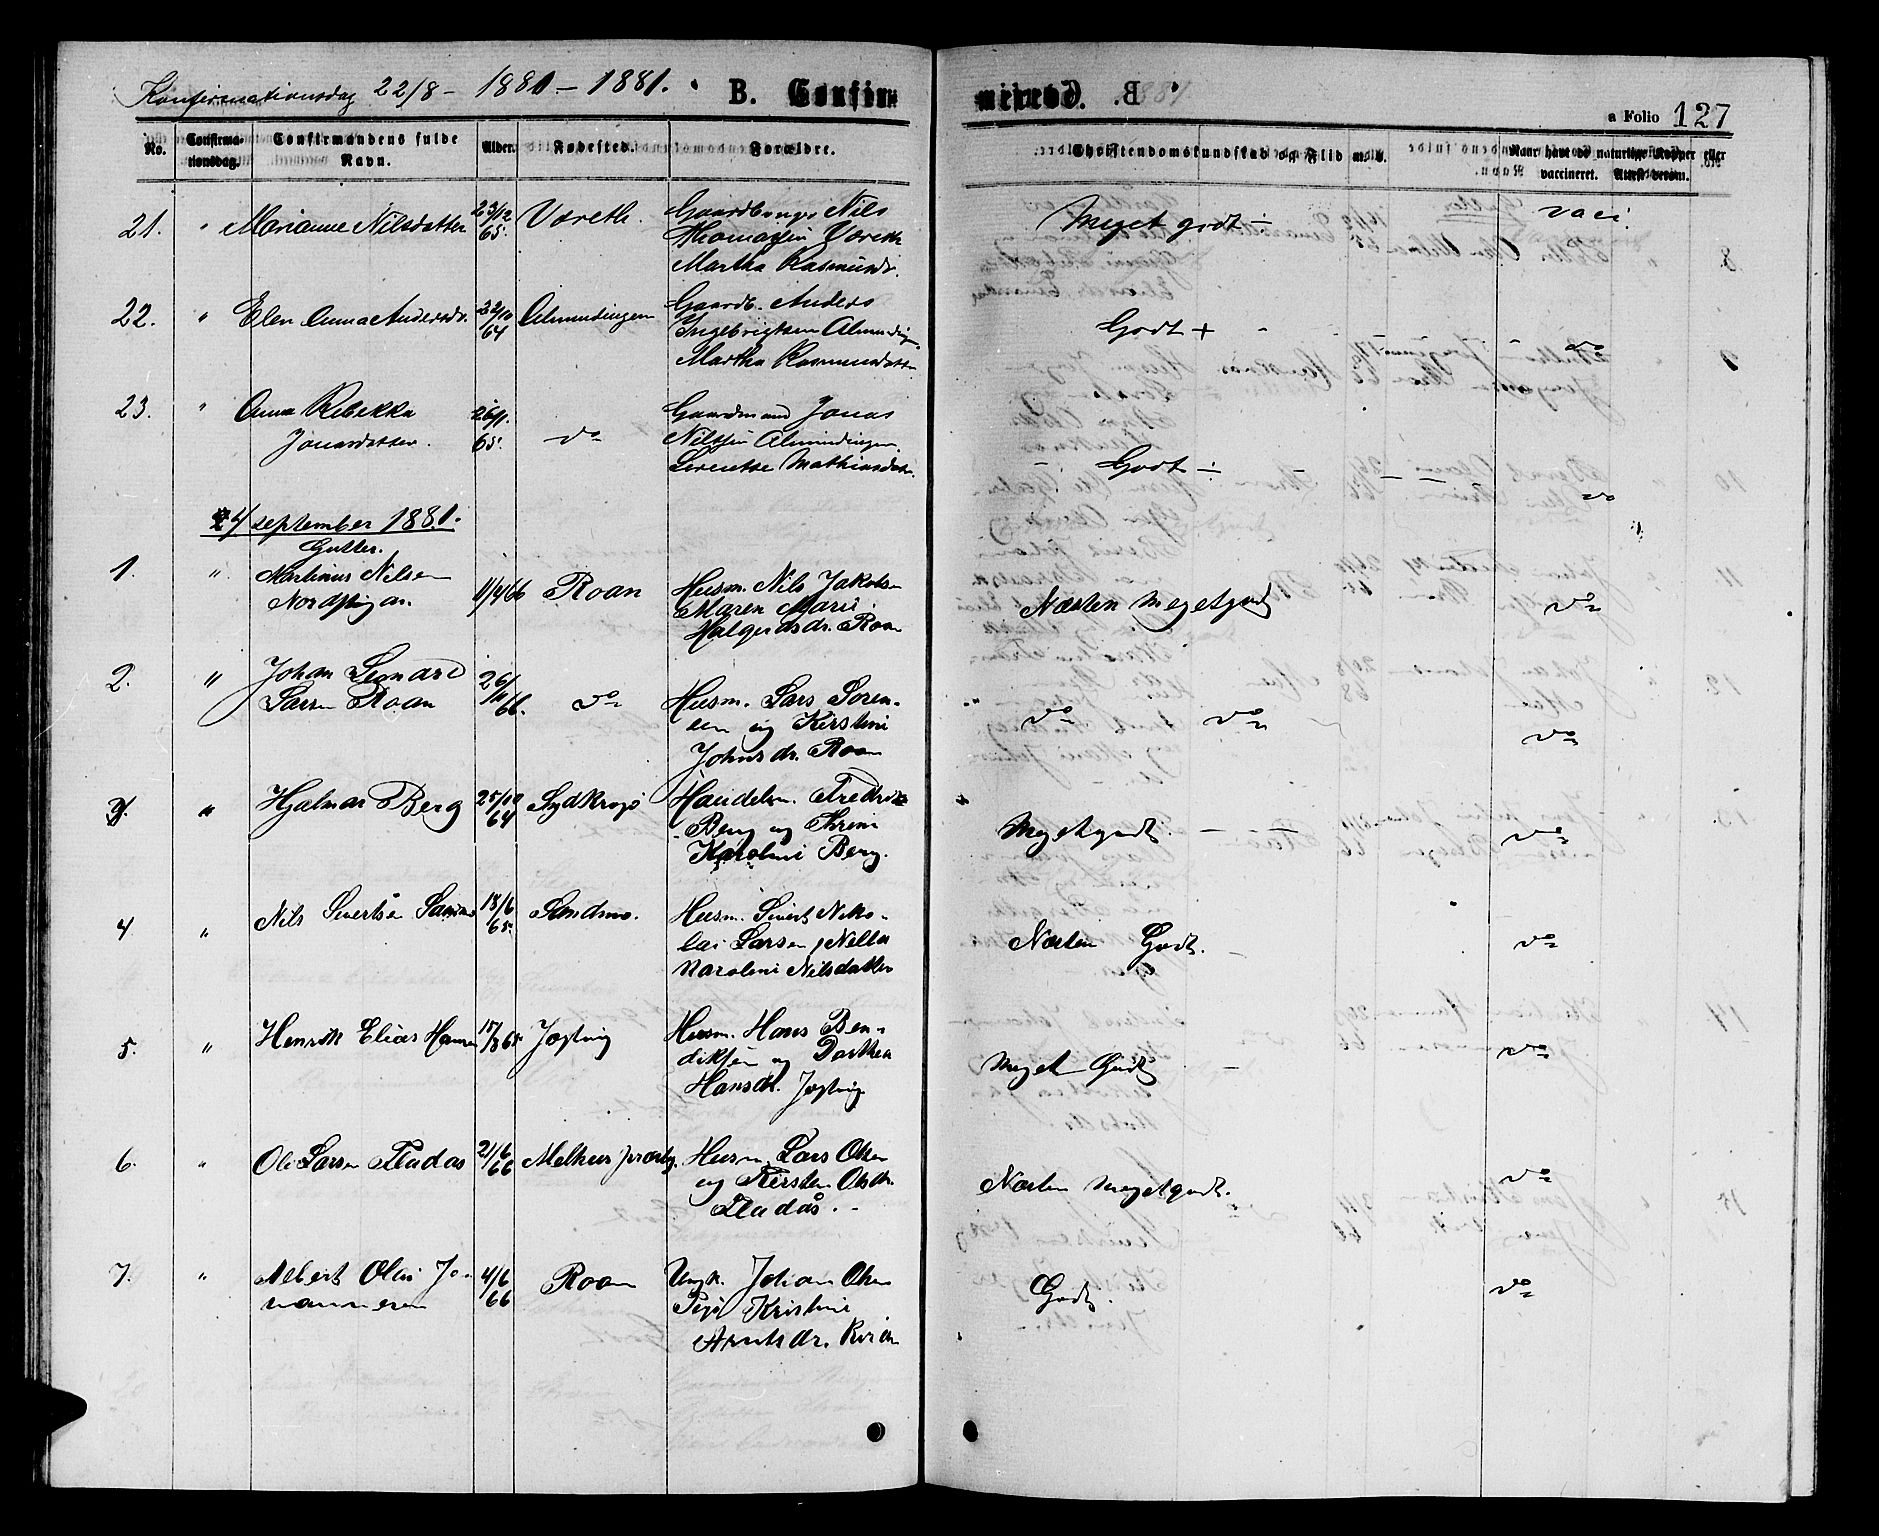 Konfirmationsdag 22/8 - 1881 - 1881. B. Confir
a Folio 127
No. Confirma-tionsdag. Confirmandens fulde Navn. Alder. Fødested. Forældre. Christendomskundskab og Flid m. v. Naar have de naturlige Kopper eller vaccineret. Attest derom.
21. " Marianne Nilsdatter 23/12 65. Væreth. Gaardbruger Nils
Thomassen Væreth
Martha Rasmusdr.
Meget godt ÷ vacc.
22. " Elen Anna Andersdr. 22/10 64 Almendingen Gaardb. Anders
Ingebrigtsen Almending.
Martha Rasmusdatter
Godt + - - do
23. " Anna Rebekka
Jonasdatter.
26/1. 65. do Gaardmand Jonas
Nilssen Almendingen
Lorentse Mathiasdatr.
- Godt ÷ - - do
4 september 1881.
Gutter.
1. " Martinus Nilsen
11/4 66 Roan Husm. Nils Jakobsen
Maren Marie
Roan
Næsten Megetgodt do
2. " Johan Leonard
Larsen Roan
26/11 66. do Husm. Lars Soren-
sen og Kirstine
Johnsdr. Roan
do do do
3. " Hjalmar Berg 25/10 64 Sydkrogø Handelsm. Fredrik
Berg og Trine
Karoline Berg.
Megetgodt. - - do
4 " Nils Sivertsen Sandmo 18/6 65. Sandmo. Husm. Sivert Niko-
lai Larsen,
Karoline Nilsdatter
Næsten Godt. - do
5. " Henrik Elias Hansen 15/3 65 Jøssvig Husm. Hans Ben-
diktsen og Dorthea
Hansdt. Jøssvig
Meget Godt - do
6. " Ole Larsen Fladås 21/6 66 Melhus præstg. Husm Lars Olsen
og Kirsten Olsdtr.
Fladås. -
Næsten Megetgodt. do
7. " Albert Olai Jo-
hannesen
4/6 66 Roan Ungk. Johan Olsen
Pige Kristine
Arntsdr.
Godt. do